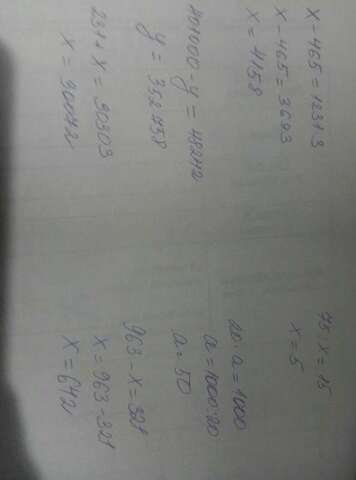 x - 465 = 1231·3
x - 465 = 3693
x = 4158
401000 - y = 48242
y = 352758
261 + x = 90303
x = 90042
75 : x = 15
x = 5
20 · a = 1000
a = 1000:20
a = 50
963 - x = 321
x = 963 - 321
x = 642